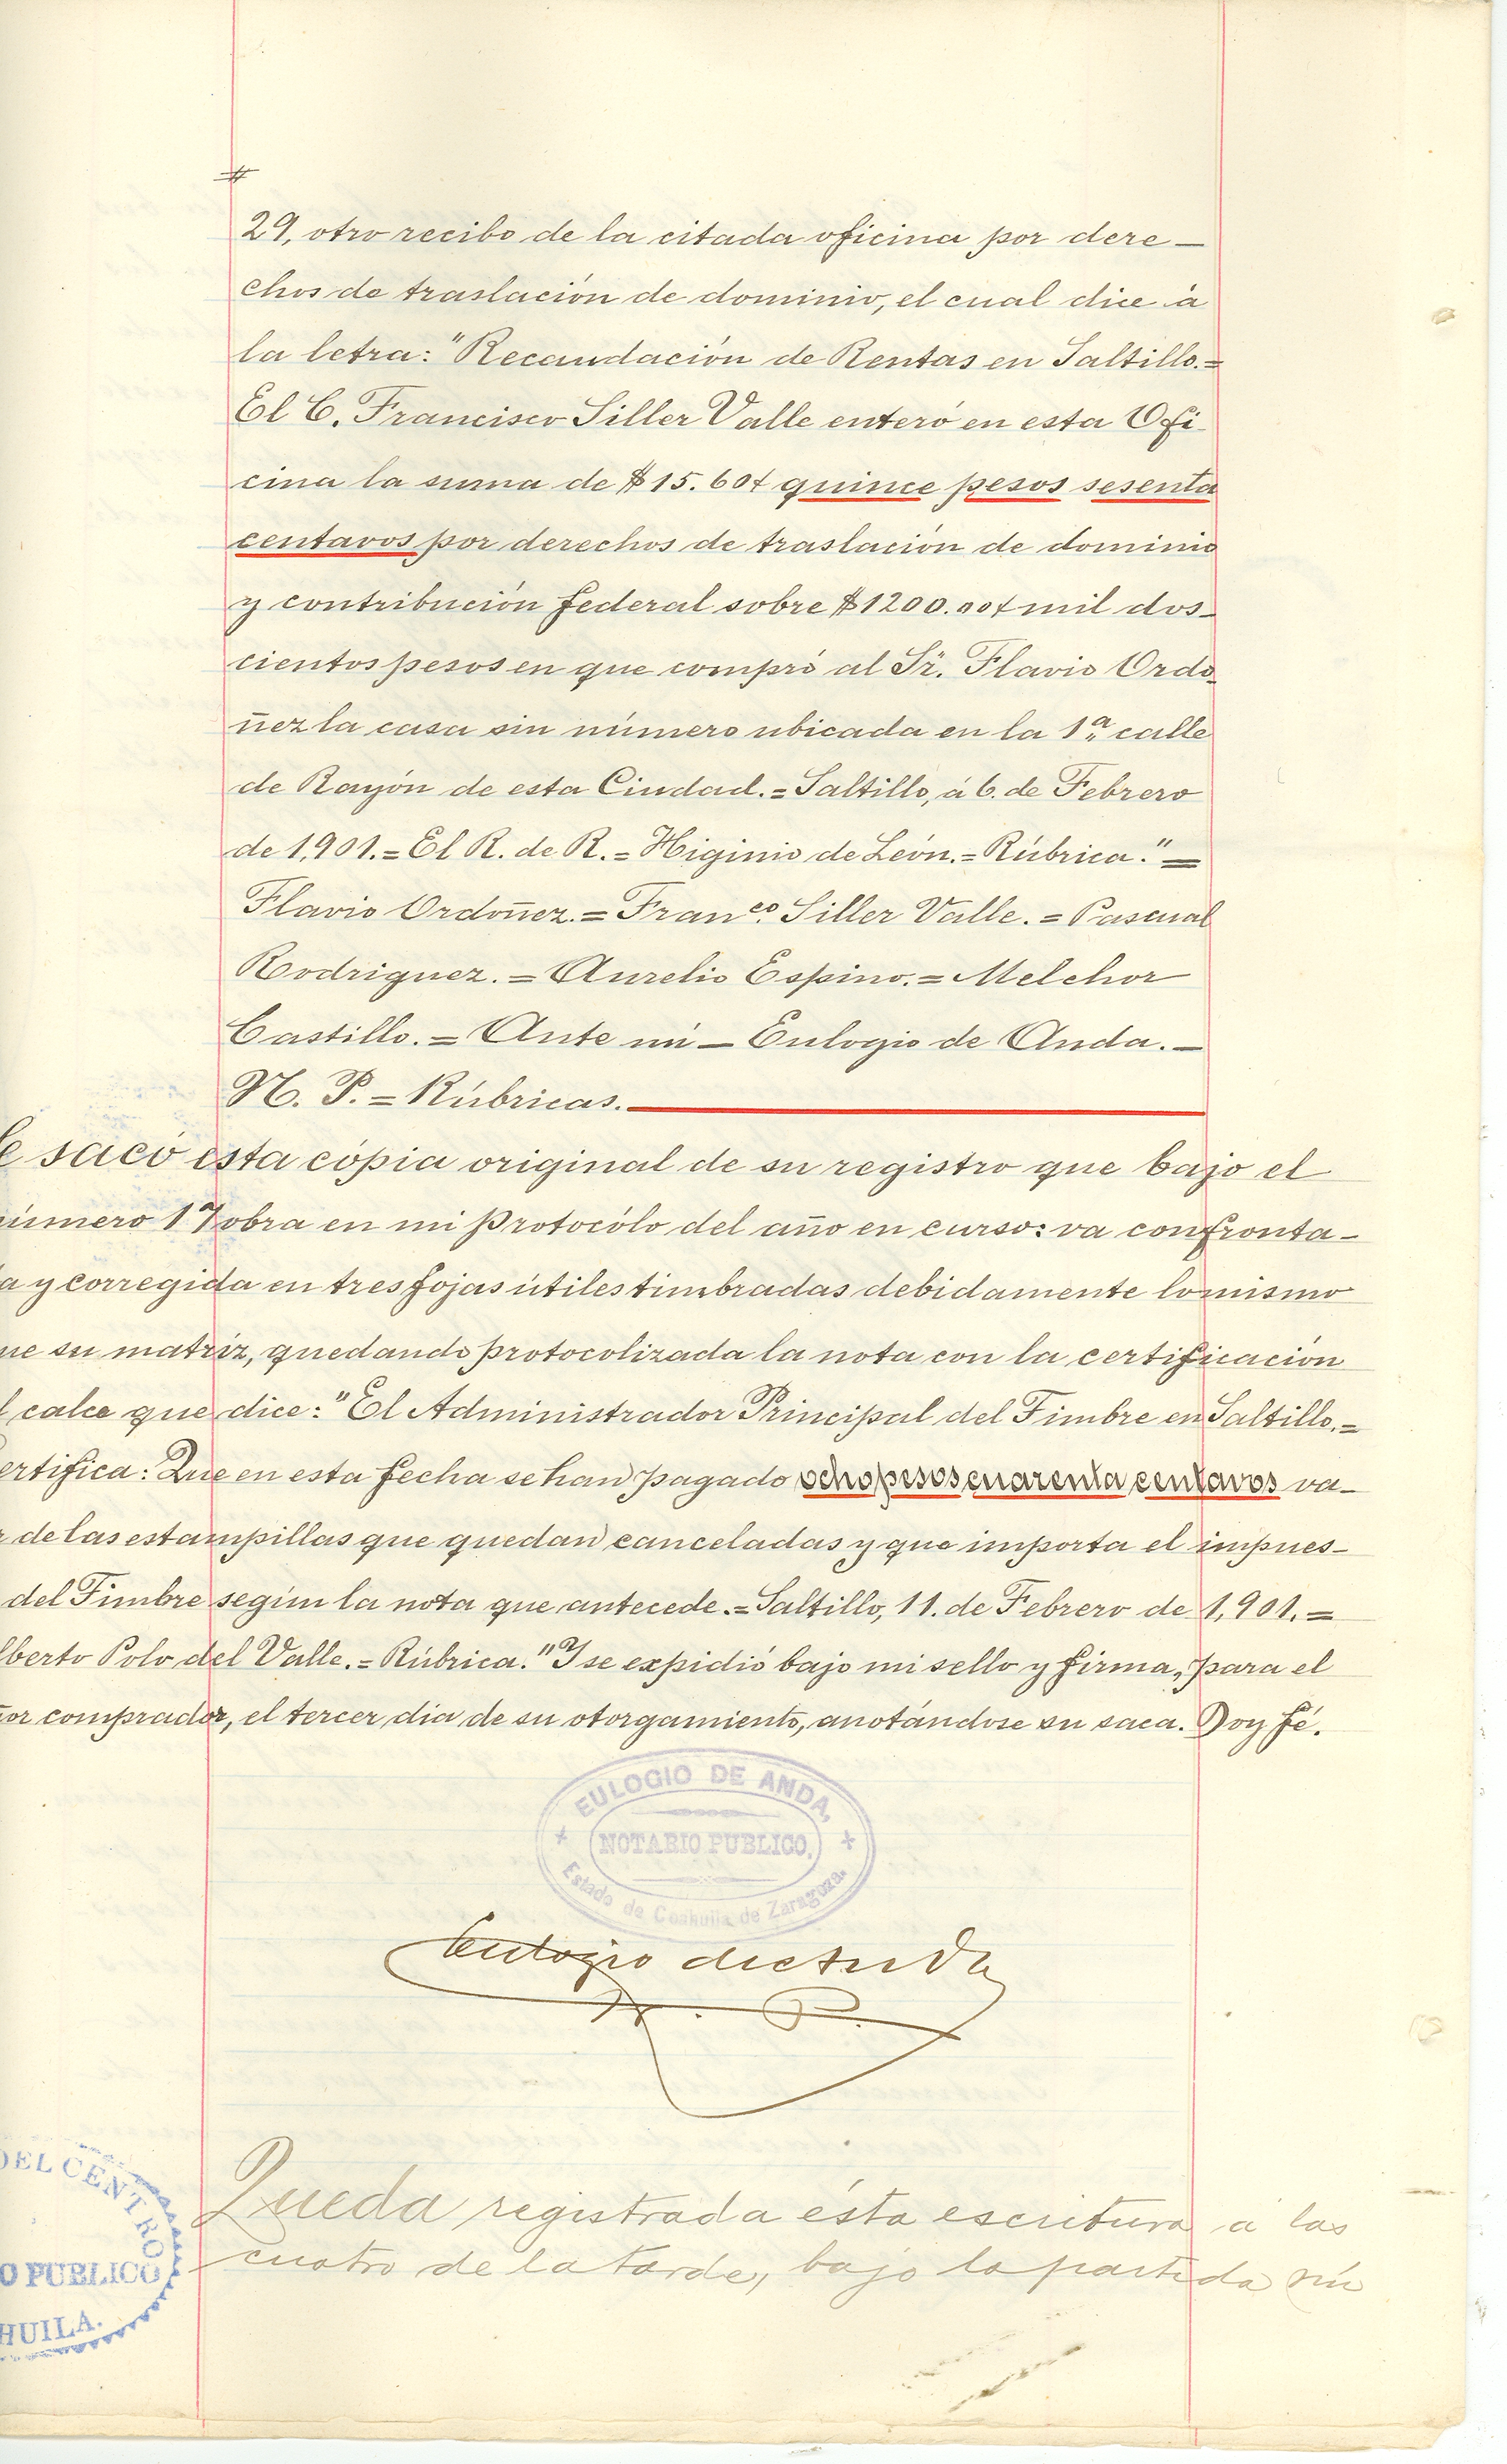 29, otro recibo de la citada oficina por dere—
chos de traslación de dominio, el cual dice á
la letra: "Recaudación de Rentas en Saltillo.=
El C. Francisco Siller Valle enteró en esta Ofi-
cina la suma de $15.60 quince pesos sesenta
centavos por derechos de traslación de dominio
y contribución federal sobre $1200.00 mil dos-
cientos pesos en que compró al Sr. Flavio Ordo-
ñez la casa sin número ubicada en la 1.ª calle
de Rayón de esta Ciudad.=Saltillo, á 6. de Febrero
de 1,901.=El R. de R.=Higinio de León.=Rúbrica."=
Flavio Ordoñez.=Fran.co Siller Valle.=Pascual
Rodriguez.=Aurelio Espino.=Melchor
Castillo.=Ante mi—Eulogio de Anda.—
N. P.=Rúbricas.
e sacó esta cópia original de su registro que bajo el
úmero 17 obra en mi Protocólo del año en curso: va confronta-
a y corregida en tres fojas útiles timbradas debidamente lo mismo
ue su matriz, quedando protocolizada la nota con la certificación
l calce que dice: "El Administrador Principal del Timbre en Saltillo.=
ertifica: Que en esta fecha se han pagado ocho pesos cuarenta centavos va-
r de las estampillas que quedan canceladas y que importa el impues-
del Timbre según la nota que antecede.=Saltillo, 11. de Febrero de 1,901.=
lberto Polo del Valle.=Rúbrica." Y se expidió bajo mi sello y firma, para el
or comprador, el tercer dia de su otorgamiento, anotándose su saca. Doy fé.
EULOGIO DE ANDA,
NOTARIO PUBLICO.
Estado de Coahuila de Zaragoza.
Eulogio de Anda
N. P.
DEL CENTRO
O PUBLICO
HUILA.
Queda registrada ésta escritura á las
cuatro de la tarde, bajo la partida nú